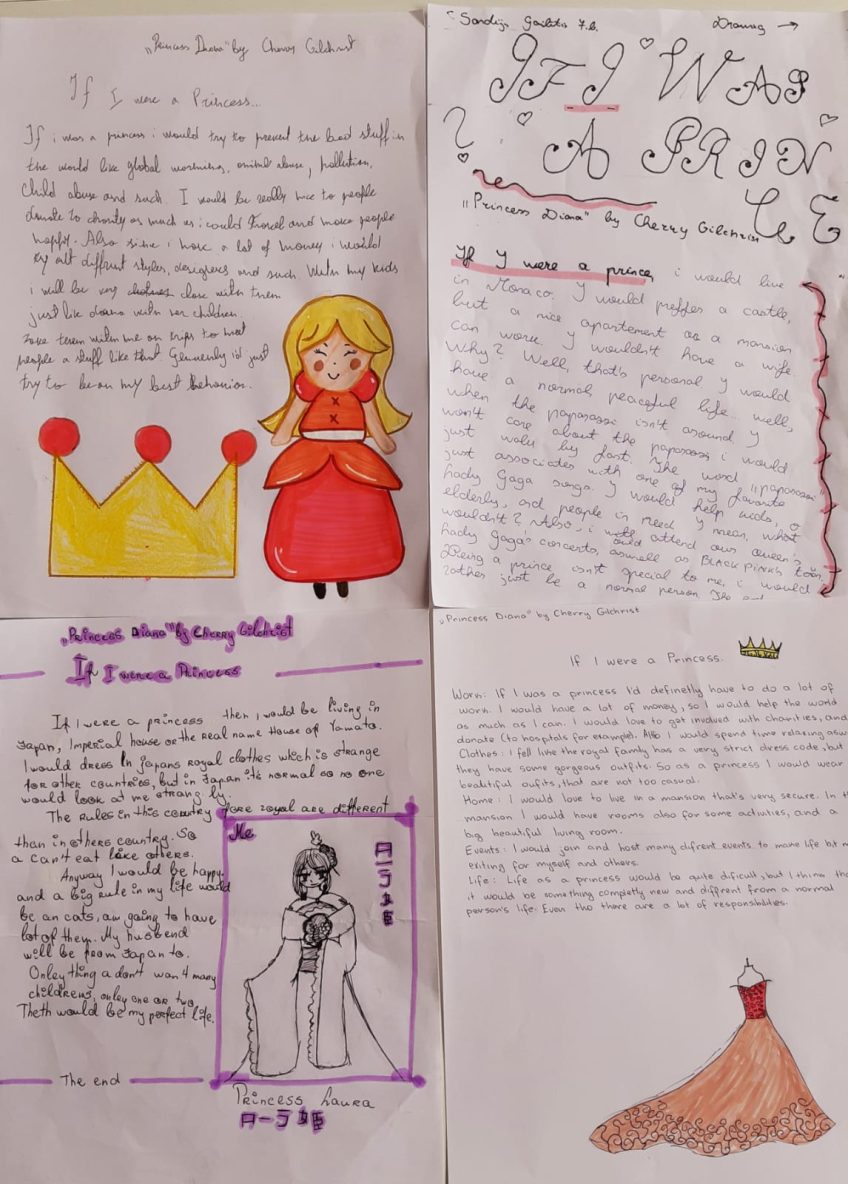 „Princess Diana" by Cherry Gilchrist
If I were a Princess...
If i was a princess i would try to prevent the bad stuff in
the world like global animal abuse, pollution,
child abuse and such. I would be really nice to people
donate to charity as much as i could and make people
happy. Also since i have a lot of money i would
try different styles, designers and such. With my kids
i will be very close with them
just like diana with her children.
Take them with me on trips to
people a stuff like that i'd just
try to be on my best
7.b.
Drawing →
IF I WAS
A PRIN
CE
„Princess Diana" by Cherry Gilchrist
If I were a prince, i would live
in Monaco. Y would a castle,
but a nice apartement as a mansion
can work. y wouldn't have a wife.
Why? Well, that's personal y would
have a normal peaceful life... well,
when the isn't around y
won't care about the i would
just walk by fast. The word
just associates with one of my favorite
Lady Gaga songs. y would help kids,
elderly, and people in need y mean, what
wouldn't? Also, i attend our queen's
Lady Gaga's concerts, aswell as BLACK PINKS tour,
Being a prince isn't special to me, i would
rather just be a normal person. The end
„Princess Diana" by Cherry Gilchrist
If I were a Princess
If I were a princess then I would be living in
Japan, Imperial house or the real name House of Yamato.
I would dress In japans Royal clothes which is strange
for other countries, but in Japan it's normal so no one
would look at me strang ly.
The Rules in this country fore royal are different
than in others country. So
a can't eat like others.
Anyway I would be happy.
and a big rule in my life would
be an cats, am going to have
lot of them. My husbend
will be from Japan to.
Onley thing a don't wan 4 many
childrens, onley one or two.
Theth would be my perfect life.
The end
Me
ローラ姫
Princess Laura
ローラ姫
„Princess Diana" by Cherry Gilchrist
If I were a Princess.
Work: If I was a princess I'd definetly have to do a lot of
work. I would have a lot of money, so I would help the world
as much as I can. I would love to get involved with charities, and
donate (to hospitals for example). Also I would spend time relaxing
Clothes: I fell like the royal family has a very strict dress code, but
they have some gorgeous outfits. So as a princess I would wear
beautiful oufits, that are not too casual.
Home: I would love to live in a mansion that's very secure. In
mansion I would have rooms also for some activities, and a
big beautiful living room.
Events: I would join and host many difrent events to make life bit
exiting for myself and others.
Life: Life as a princess would be quite dificult, but I think
it would be something completly new and diffrent from a normal
person's life. Even tho there are a lot of responsibilities.